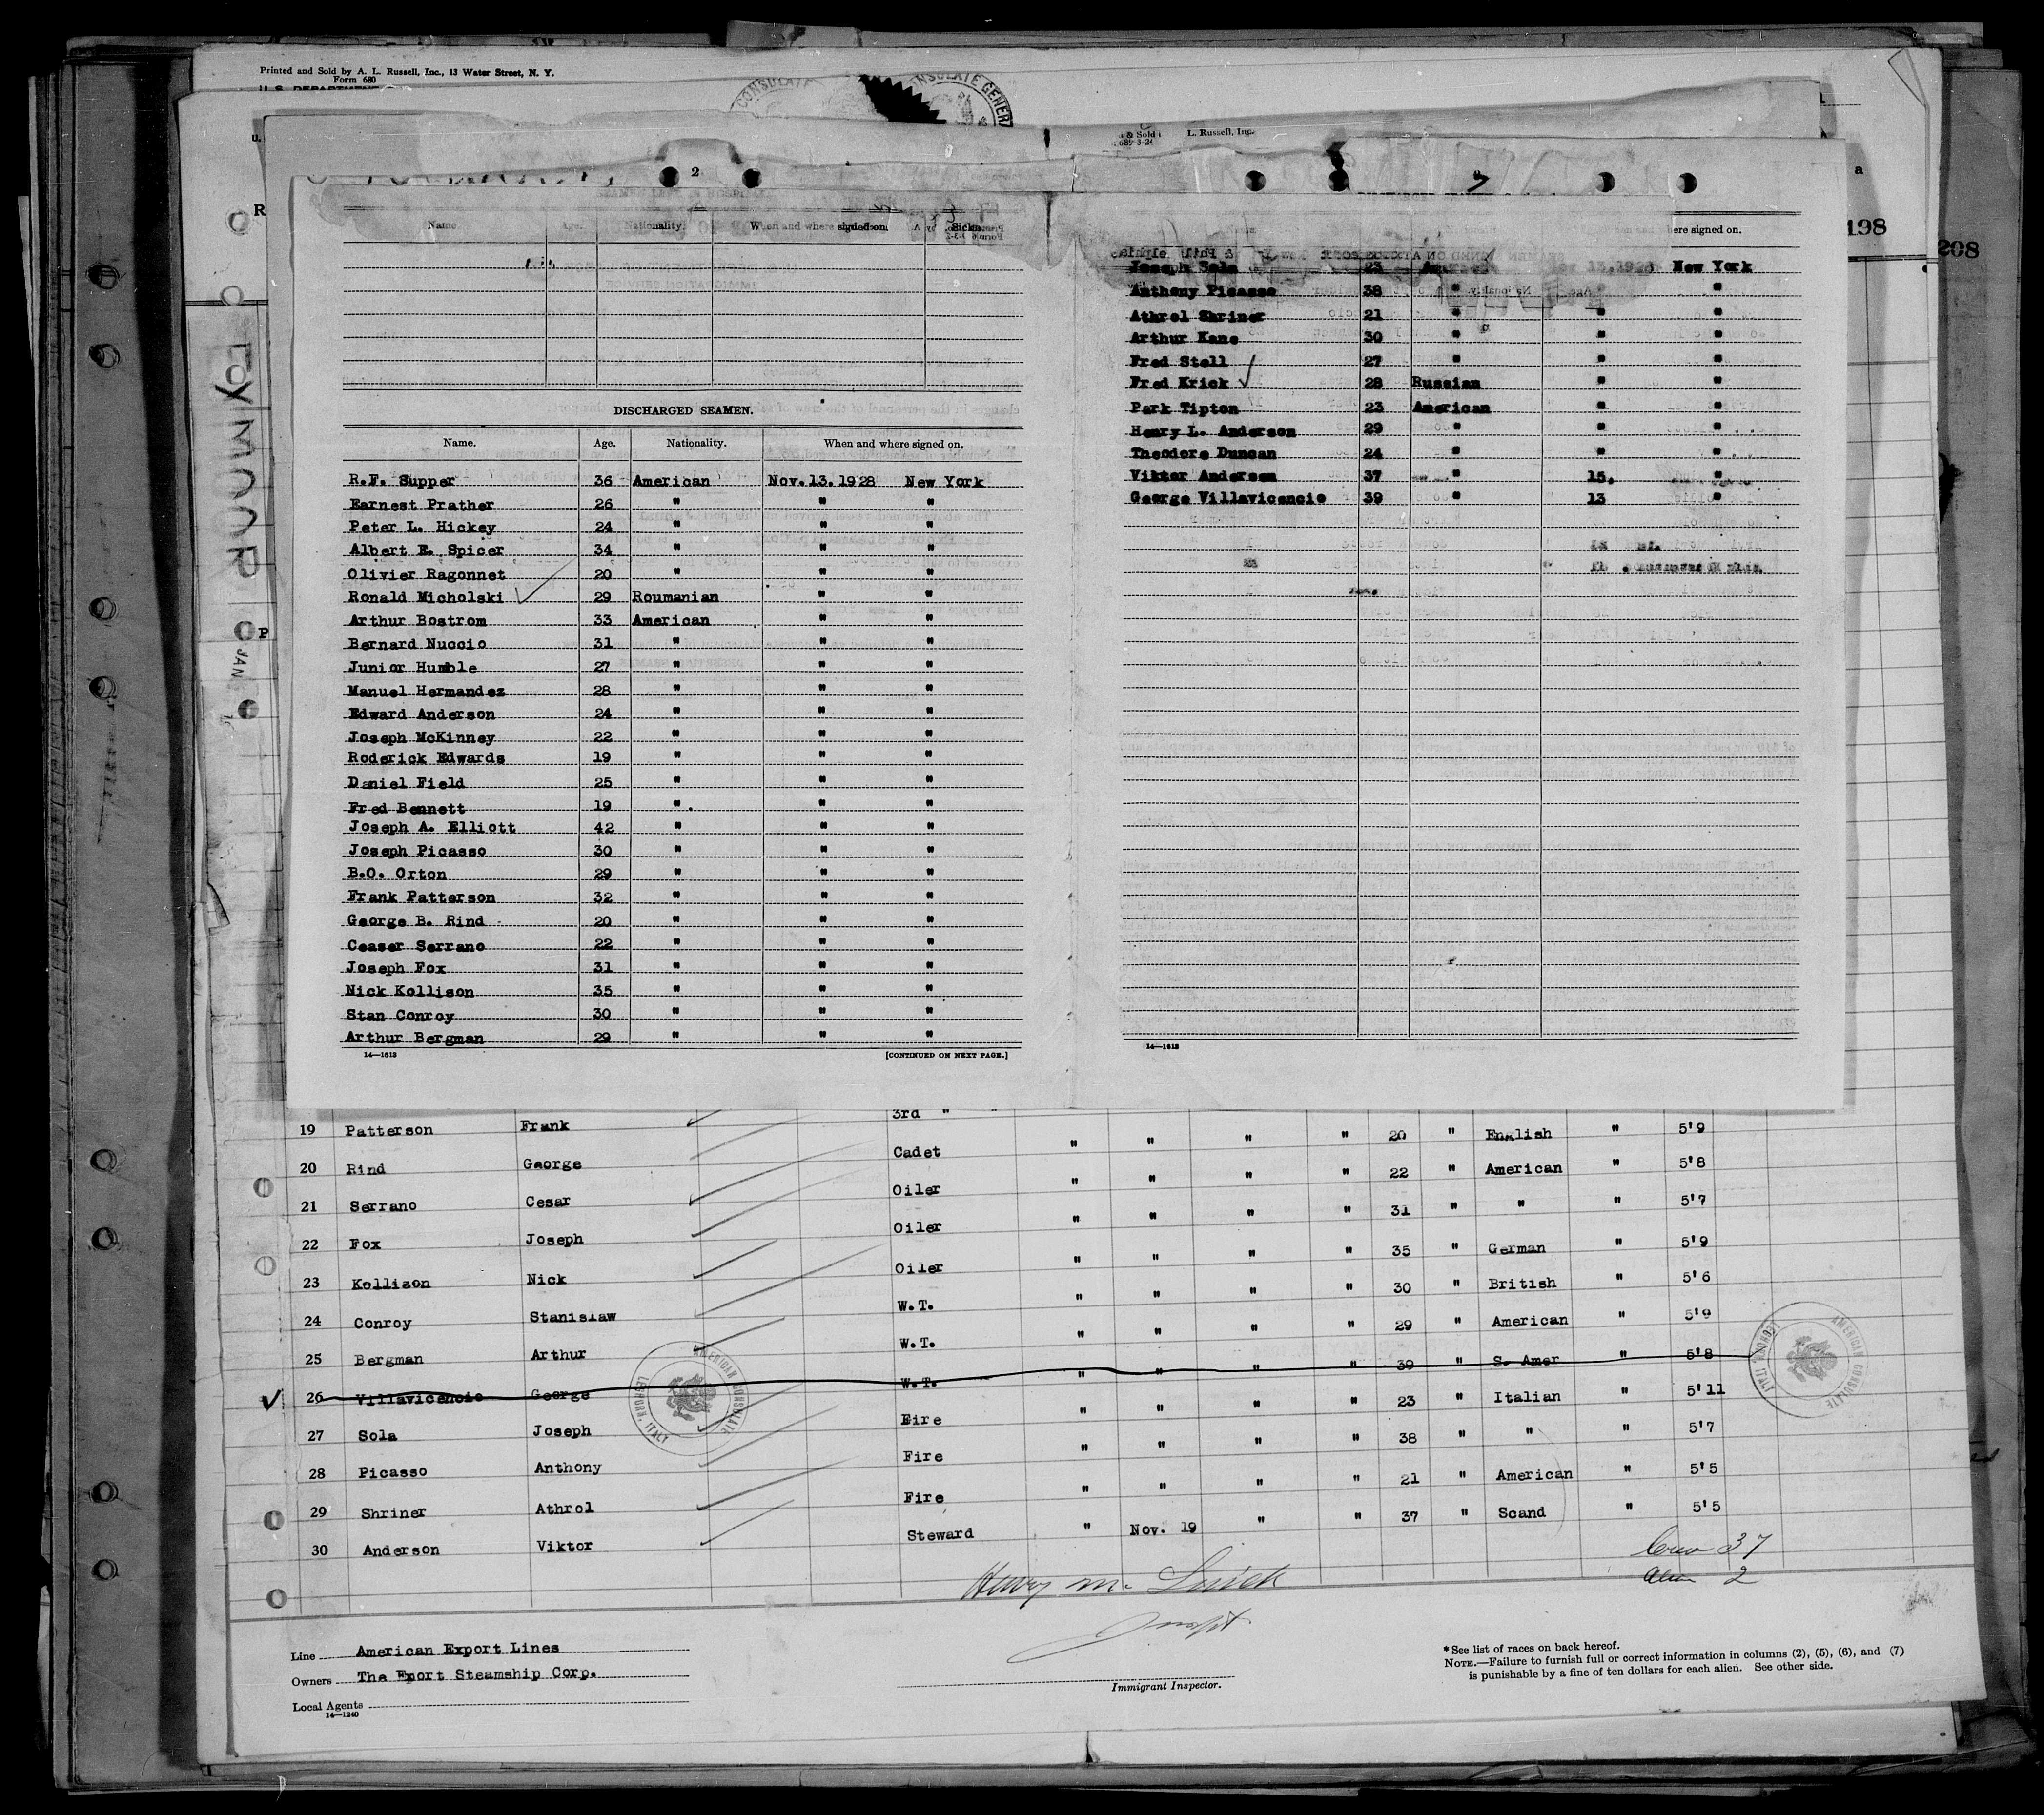 Printed and Sold by A. L. Russell, Inc., 13 Water Street, N. Y.
Form 680
U.S. DEPARTMENT
L. Russell, Inc.
2
a
198
208
FOXMOOR
JAN
P
Name. Age. Nationality. When and where signed on.
DISCHARGED SEAMEN.
Name. Age. Nationality. When and where signed on.
R.F. Supper 36 American Nov.13.1928 New York
Earnest Prather 26 " " "
Peter L. Hickey 24 " " "
Albert E. Spicer 34 " " "
Olivier Ragonnet 20 " " "
Ronald Micholski 29 Roumanian " "
Arthur Bostrom 33 American " "
Bernard Nuccio 31 " " "
Junior Humble 27 " " "
Manuel Hermandez 28 " " "
Edward Anderson 24 " " "
Joseph McKinney 22 " " "
Roderick Edwards 19 " " "
Daniel Field 25 " " "
Fred Bennett 19 " " "
Joseph A. Elliott 42 " " "
Joseph Picasso 30 " " "
B.O. Orton 29 " " "
Frank Patterson 32 " " "
George B. Rind 20 " " "
Ceaser Serrano 22 " " "
Joseph Fox 31 " " "
Nick Kollison 35 " " "
Stan Conroy 30 " " "
Arthur Bergman 29 " " "
14—1613 [CONTINUED ON NEXT PAGE.]
here signed on.
Joseph Sola 23 13,1928 New York
Anthony Picasso 38 " " "
Athrol Shriner 21 " " "
Arthur Kane 30 " " "
Fred Stell 27 " " "
Fred Krick 28 Russian " "
Park Tipton 23 American " "
Henry L. Anderson 29 " " "
Theodore Duncan 24 " " "
Viktor Anderson 37 " 15. "
George Villavicencio 39 " 13 "
14—1613
3rd " "
19 Patterson Frank Cadet " " " " 20 " English " 5'9
20 Rind George Oiler " " " " 22 " American " 5'8
21 Serrano Cesar Oiler " " " " 31 " " " 5'7
22 Fox Joseph Oiler " " " " 35 " German " 5'9
23 Kollison Nick W.T. " " " " 30 " British " 5'6
24 Conroy Stanislaw W.T. " " " " 29 " American " 5'9
25 Bergman Arthur W.T. " " " " 39 " S. Amer " 5'8
26 Villavicencio George Fire " " " " 23 " Italian " 5'11
27 Sola Joseph Fire " " " " 38 " " " 5'7
28 Picasso Anthony Fire " " " " 21 " American " 5'5
29 Shriner Athrol Steward " Nov. 19 " " 37 " Scand " 5'5
30 Anderson Viktor
AMERICAN CONSULATE LEGHORN, ITALY
AMERICAN CONSULATE LEGHORN, ITALY
Crew 37
Alien 2
Line American Export Lines
Owners The Eport Steamship Corp.
Local Agents
14—1240
Immigrant Inspector.
*See list of races on back hereof.
NOTE.—Failure to furnish full or correct information in columns (2), (5), (6), and (7)
is punishable by a fine of ten dollars for each alien. See other side.